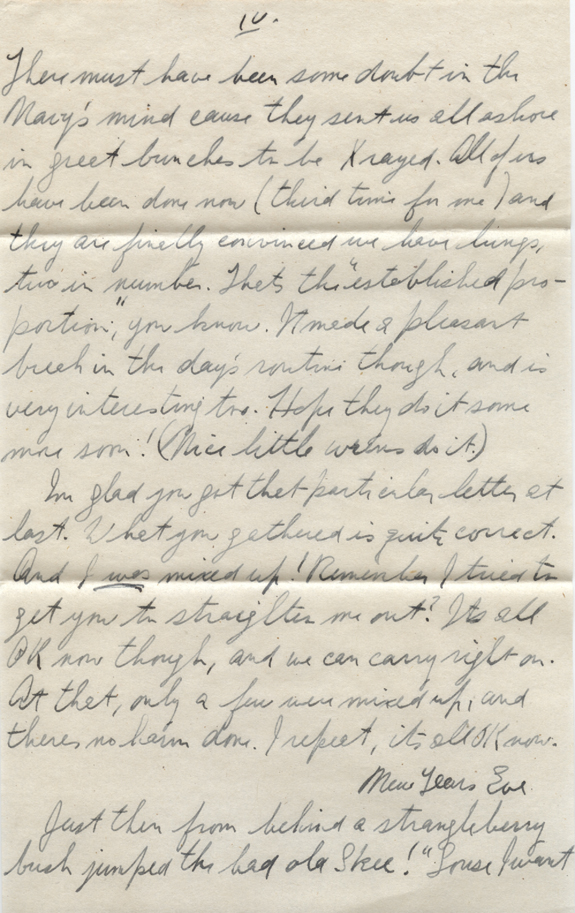 IV.
There must have been some doubt in the
Navy's mind cause they sent us all ashore
in great bunches to be Xrayed. All of us
have been done now (third time for me) and
they are finally convinced we have lungs,
two in number. Thats the "established pro-
portion", you know. It made a pleasant
break in the day's routine though, and is
very interesting too. Hope they do it some
more soon! (Nice little wrens do it.)
Im glad you got that particular letter at
last. What you gathered is quite correct.
And I was mixed up! Remember I tried to
get you to straighten me out? Its all
OK now though, and we can carry right on.
At that, only a few were mixed up, and
theres no harm done. I repeat, its all OK now.
New Years Eve
Just then from behind a strangleberry
bush jumped the bad old Skee! "Souse I want